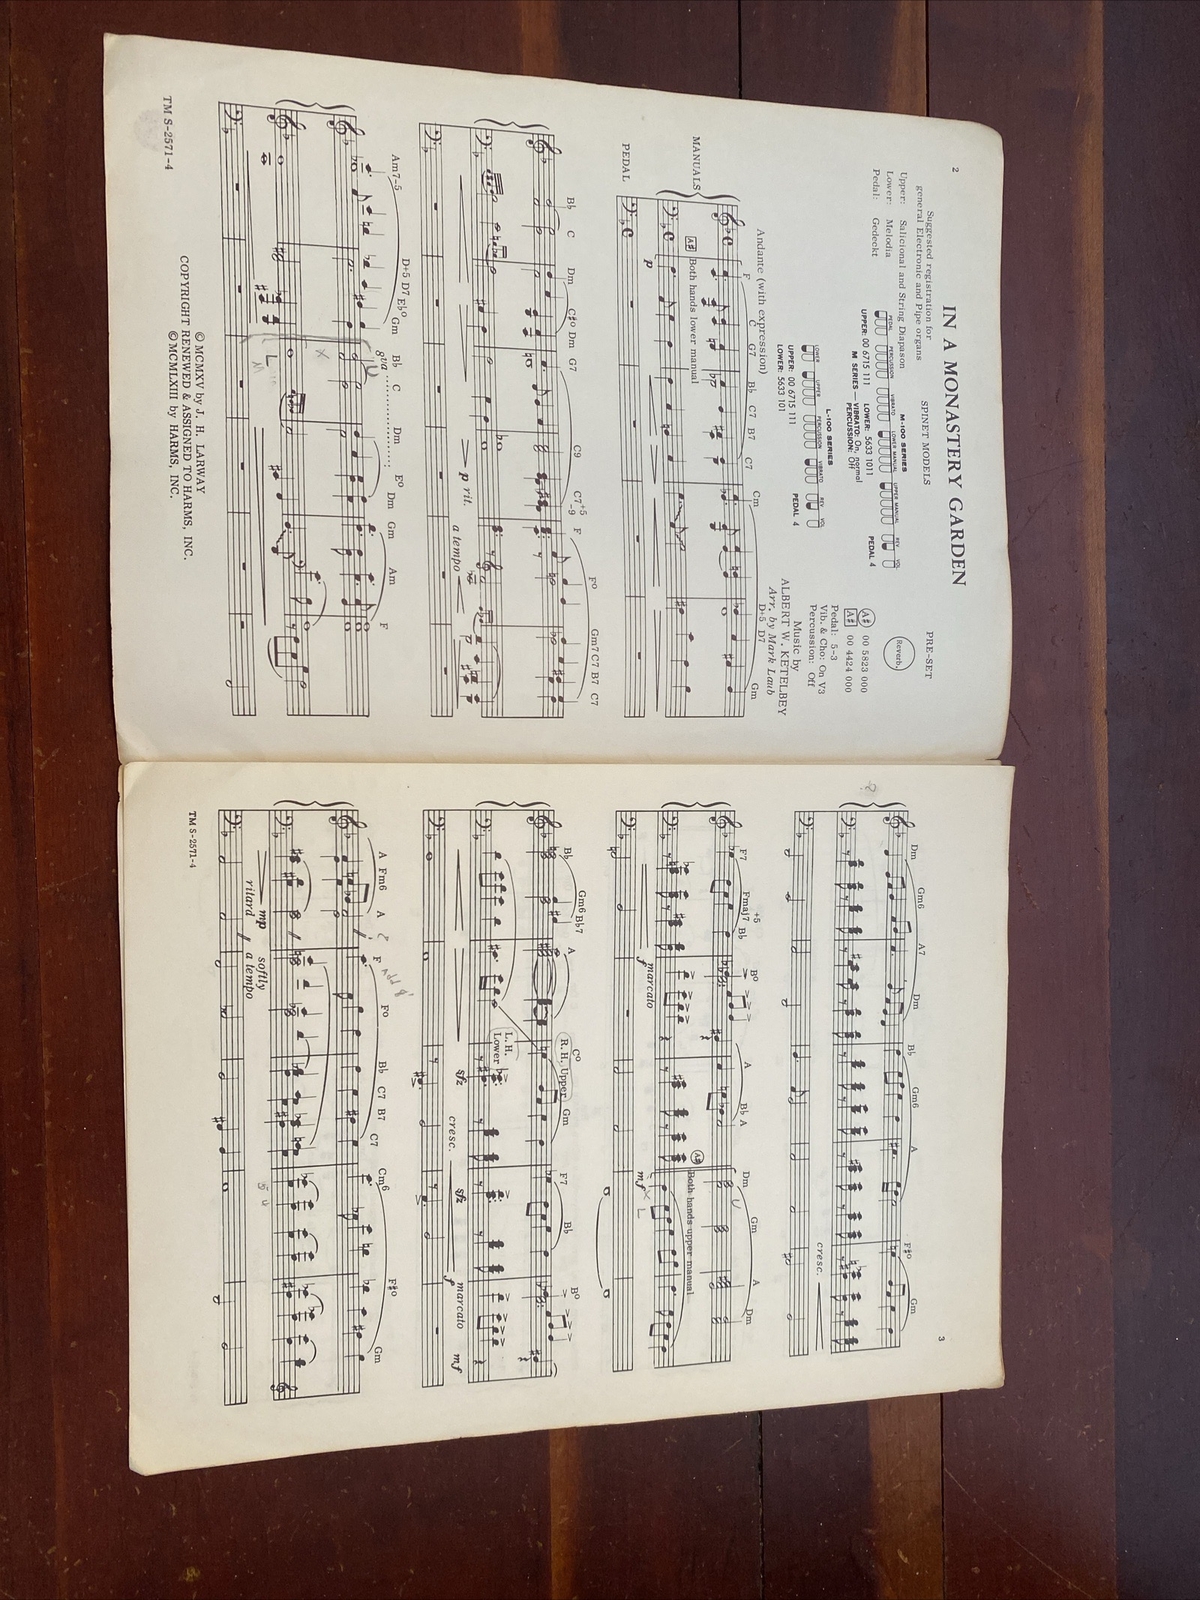 2
IN A MONASTERY GARDEN
Suggested registration for
general Electronic and Pipe organs
Upper: Salicional and String Diapason
Lower: Melodia
Pedal: Gedeckt
SPINET MODELS
M-100 SERIES
PEDAL PERCUSSION VIBRATO LOWER MANUAL UPPER MANUAL REV. VOL.
UPPER: 00 6715 111 LOWER: 5633 1011 PEDAL 4
M SERIES — VIBRATO: On, normal
PERCUSSION: Off
L-100 SERIES
LOWER UPPER PERCUSSION VIBRATO REV. VOL.
UPPER: 00 6715 111 PEDAL 4
LOWER: 5633 101
PRE-SET
Reverb.
A# 00 5823 000
A# 00 4424 000
Pedal: 5-3
Vib. & Cho: On V3
Percussion: Off
Music by
ALBERT W. KETELBEY
Arr. by Mark Laub
Andante (with expression)
F C G7 Bb C7 B7 C7 Cm D+5 D7 Gm
MANUALS
A# Both hands lower manual
p
PEDAL
Bb C Dm C#o Dm G7 C9 C7+5-9 F Fo Gm7 C7 B7 C7
p rit. a tempo
Am7-5 D+5 D7 Ebo Gm Bb C Dm Eo Dm Gm Am F
8va
U
X
L
© MCMXV by J. H. LARWAY
COPYRIGHT RENEWED & ASSIGNED TO HARMS, INC.
© MCMLXIII by HARMS, INC.
TM S-2571-4
3
Dm Gm6 A7 Dm Bb Gm6 A F#o Gm
cresc.
F7 Fmaj7 +5 Bb Bo A Bb A Dm Gm A Dm
A# Both hands upper manual
U
f marcato mf
L
Bb Gm6 Bb7 A Co Gm F7 Bb Bo
R.H. Upper
L.H.
Lower
sfz cresc. sfz f marcato mf
A Fm6 A F Fo Bb C7 B7 C7 Cm6 F#o Gm
mp softly
ritard a tempo
TM S-2571-4